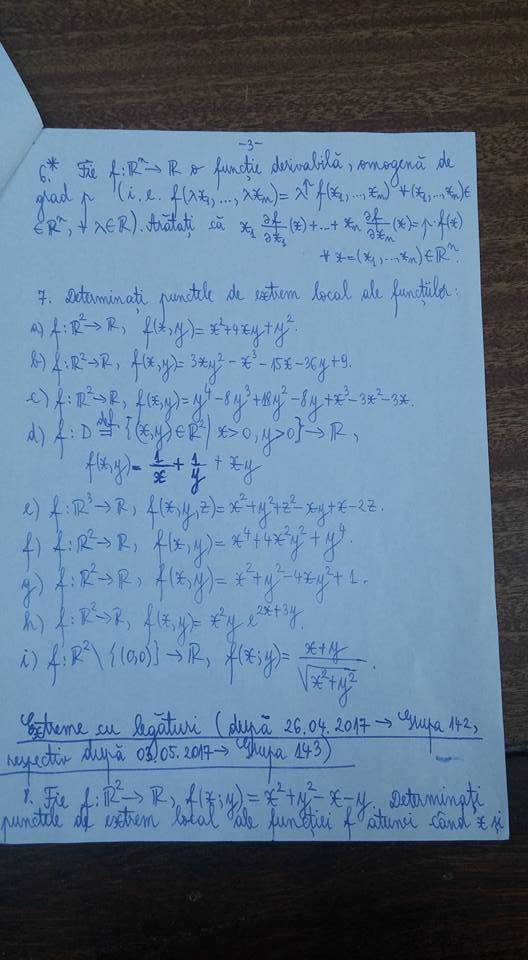 -3-
6.* Fie f: ℝⁿ → ℝ o funcție derivabilă, omogenă de
grad p (i.e. f(λx₁, ..., λxₙ) = λᵖ f(x₁, ..., xₙ) ∀ (x₁, ..., xₙ) ∈
∈ ℝⁿ, ∀ λ ∈ ℝ). Arătați că x₁ ∂f/∂x₁ (x) + ... + xₙ ∂f/∂xₙ (x) = p · f(x)
∀ x = (x₁, ..., xₙ) ∈ ℝⁿ.
7. Determinați punctele de extrem local ale funcțiilor:
a) f: ℝ² → ℝ, f(x,y) = x² + 4xy + y².
b) f: ℝ² → ℝ, f(x,y) = 3xy² - x³ - 15x - 36y + 9.
c) f: ℝ² → ℝ, f(x,y) = y⁴ - 8y³ + 18y² - 8y + x³ - 3x² - 3x.
d) f: D def.= {(x,y) ∈ ℝ² | x>0, y>0} → ℝ,
f(x,y) = 1/x + 1/y + xy
e) f: ℝ³ → ℝ, f(x,y,z) = x² + y² + z² - xy + x - 2z.
f) f: ℝ² → ℝ, f(x,y) = x⁴ + 4x²y² + y⁴.
g) f: ℝ² → ℝ, f(x,y) = x² + y² - 4xy² + 1.
h) f: ℝ² → ℝ, f(x,y) = x²y e^(2x+3y).
i) f: ℝ² \ {(0,0)} → ℝ, f(x;y) = (x+y)/√(x²+y²).
Extreme cu legături (după 26.04.2017 → Grupa 142,
respectiv după 03.05.2017 → Grupa 143)
8. Fie f: ℝ² → ℝ, f(x;y) = x² + y² - x - y. Determinați
punctele de extrem local ale funcției f atunci când x și